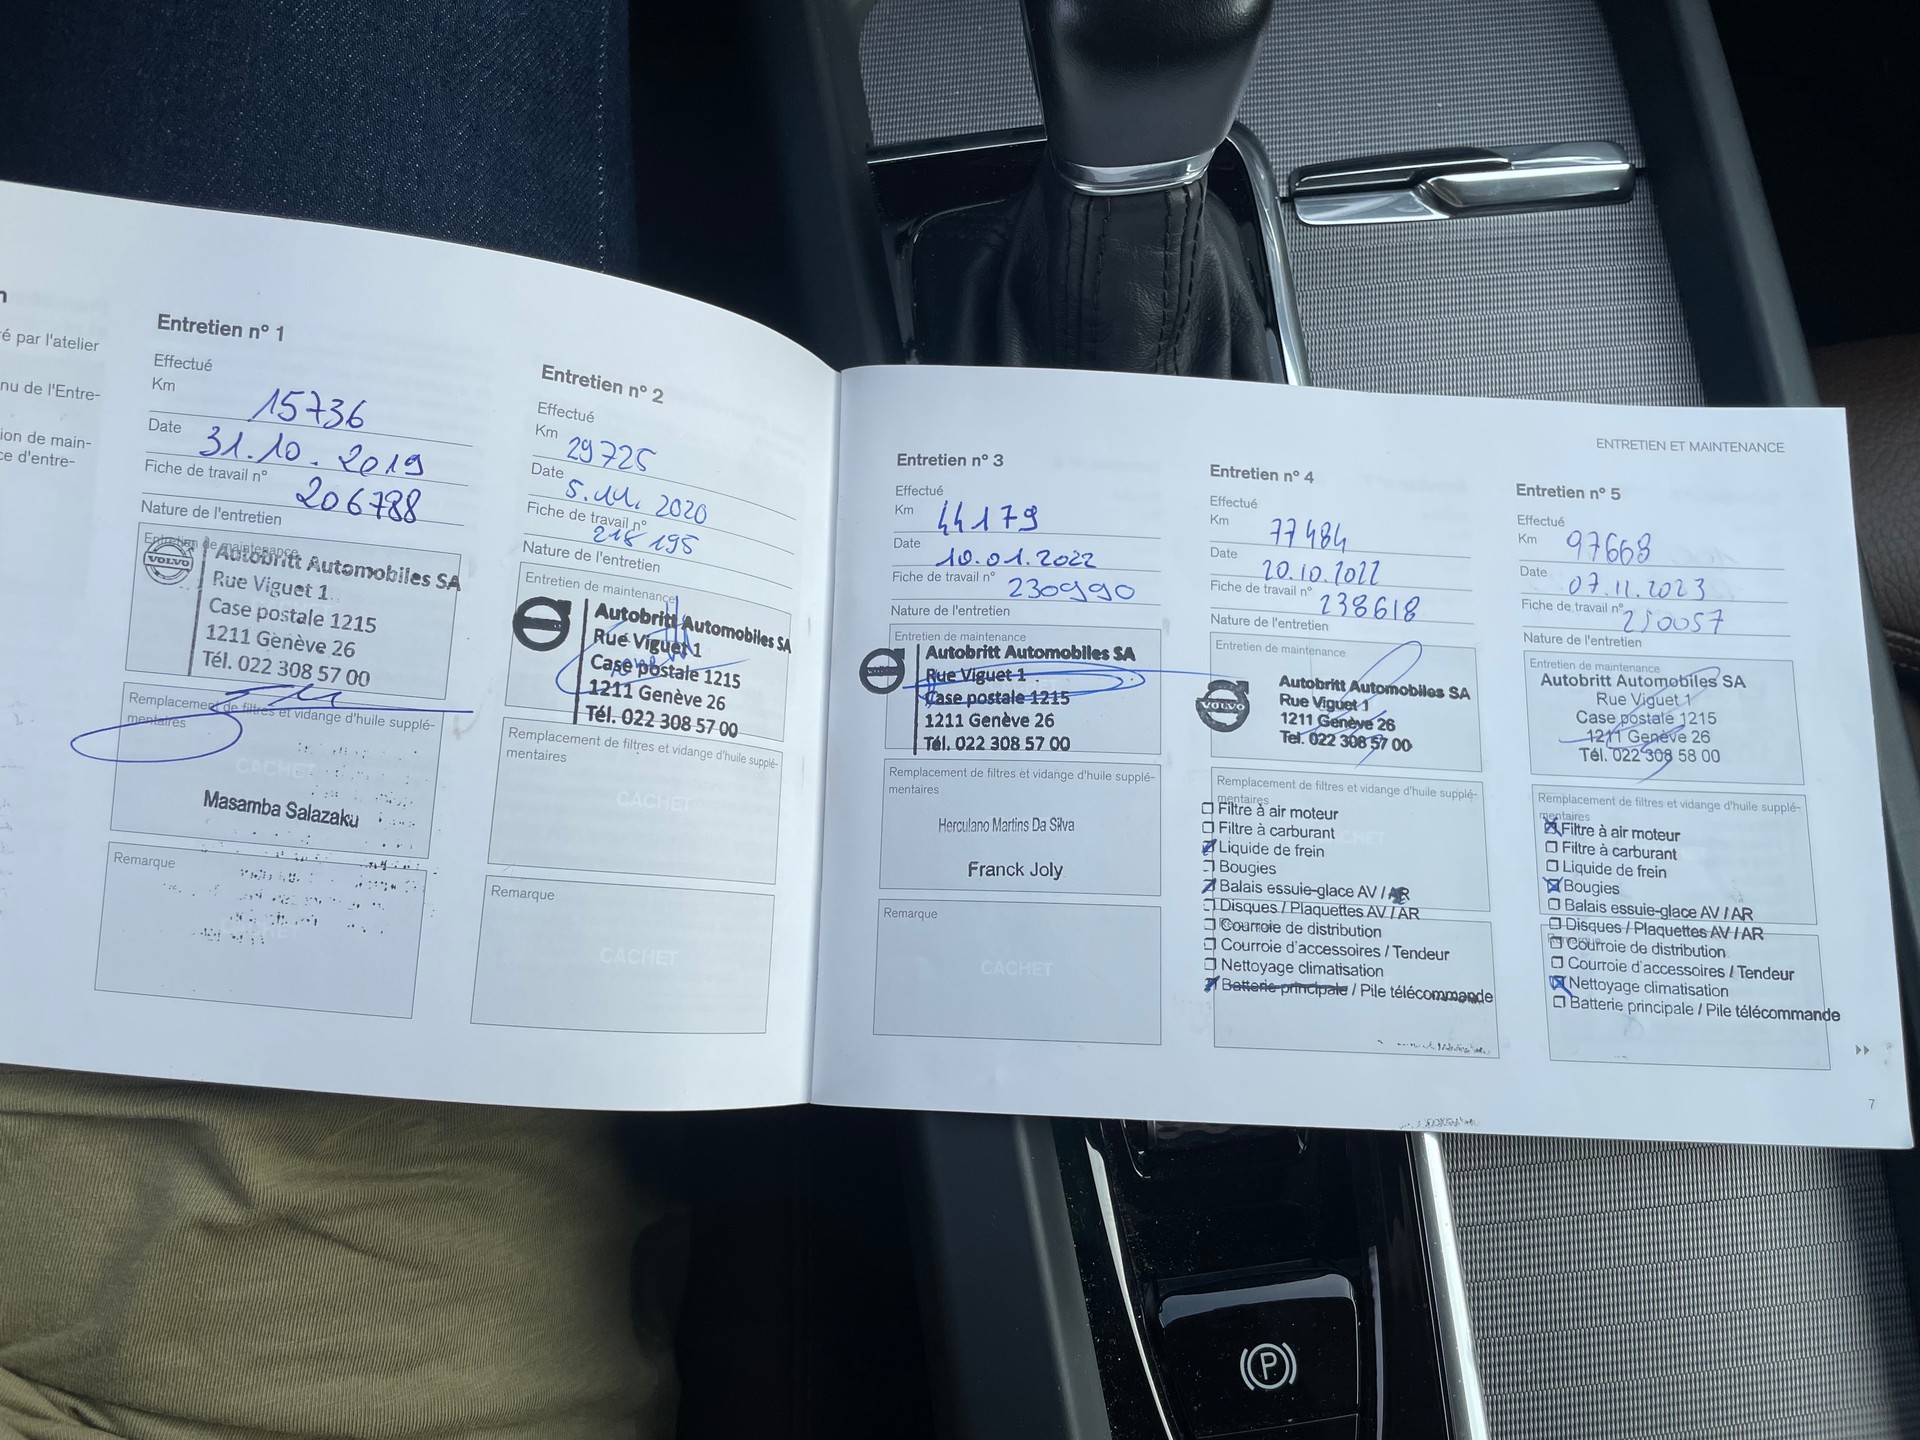 n
é par l'atelier
nu de l'Entre-
ion de main-
ce d'entre-
Entretien n° 1
Effectué
Km 15736
Date 31.10.2019
Fiche de travail n° 206788
Nature de l'entretien
Entretien de maintenance
VOLVO
Autobritt Automobiles SA
Rue Viguet 1
Case postale 1215
1211 Genève 26
Tél. 022 308 57 00
Remplacement de filtres et vidange d'huile supplé-
mentaires
CACHET
Masamba Salazaku
Remarque
CACHET
Entretien n° 2
Effectué
Km 29725
Date 5.11.2020
Fiche de travail n° 218195
Nature de l'entretien
Entretien de maintenance
Autobritt Automobiles SA
Rue Viguet 1
Case postale 1215
1211 Genève 26
Tél. 022 308 57 00
Remplacement de filtres et vidange d'huile supplé-
mentaires
CACHET
Remarque
CACHET
ENTRETIEN ET MAINTENANCE
Entretien n° 3
Effectué
Km 44179
Date 10.01.2022
Fiche de travail n° 230990
Nature de l'entretien
Entretien de maintenance
Autobritt Automobiles SA
Rue Viguet 1
Case postale 1215
1211 Genève 26
Tél. 022 308 57 00
Remplacement de filtres et vidange d'huile supplé-
mentaires
Herculano Martins Da Silva
Franck Joly
Remarque
CACHET
Entretien n° 4
Effectué
Km 77484
Date 20.10.2022
Fiche de travail n° 238618
Nature de l'entretien
Entretien de maintenance
VOLVO
Autobritt Automobiles SA
Rue Viguet 1
1211 Genève 26
Tel. 022 308 57 00
Remplacement de filtres et vidange d'huile supplé-
mentaires
Filtre à air moteur
Filtre à carburant
Liquide de frein
Bougies
Balais essuie-glace AV / AR
Disques / Plaquettes AV / AR
Courroie de distribution
Courroie d'accessoires / Tendeur
Nettoyage climatisation
Batterie principale / Pile télécommande
Entretien n° 5
Effectué
Km 97668
Date 07.11.2023
Fiche de travail n° 250057
Nature de l'entretien
Entretien de maintenance
Autobritt Automobiles SA
Rue Viguet 1
Case postale 1215
1211 Genève 26
Tél. 022 308 58 00
Remplacement de filtres et vidange d'huile supplé-
mentaires
Filtre à air moteur
Filtre à carburant
Liquide de frein
Bougies
Balais essuie-glace AV / AR
Disques / Plaquettes AV / AR
Courroie de distribution
Courroie d'accessoires / Tendeur
Nettoyage climatisation
Batterie principale / Pile télécommande
7
P